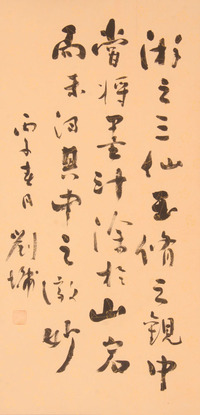 游之三仙玉脩之觀中
嘗將墨汁塗於山岩
未得其中之妙
丙子春月 劉墉